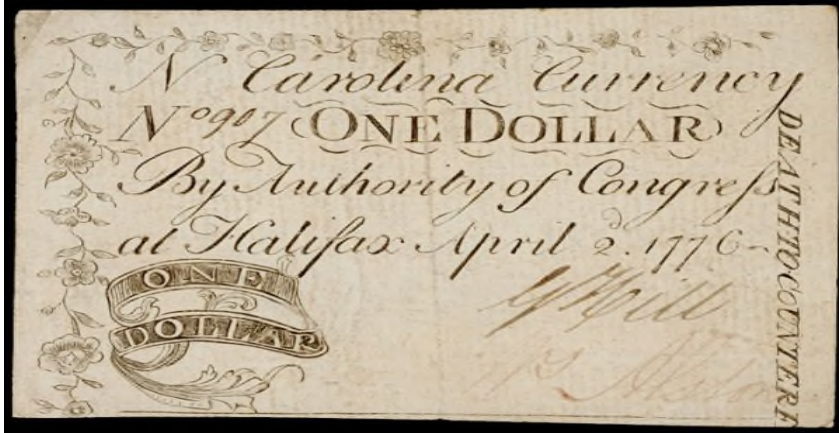 N Carolina Currency
No 907 ONE DOLLAR
By Authority of Congress
at Halifax April 2d. 1776
ONE
DOLLAR
W Hill
DEATH TO COUNTERF